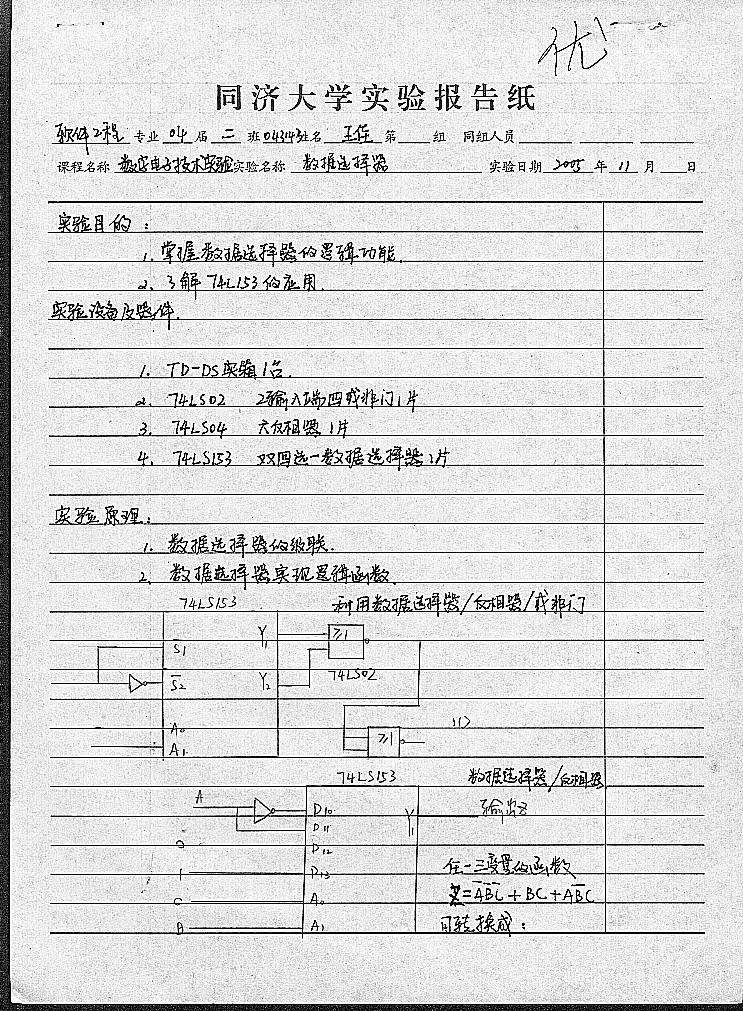 优
同济大学实验报告纸
软件工程 专业 04 届 二 班 04343 姓名 王 第 组 同组人员
课程名称 数字电子技术实验 实验名称 数据选择器 实验日期 2005 年 11 月 日
实验目的：
1. 掌握数据选择器的逻辑功能.
2. 了解 74LS153 的应用.
实验设备及器件.
1. TD-DS实验箱1台.
2. 74LS02 2输入端四或非门1片
3. 74LS04 六反相器1片
4. 74LS153 双四选一数据选择器1片
实验原理：
1. 数据选择器的级联.
2. 数据选择器实现逻辑函数.
74LS153 利用数据选择器/反相器/或非门
S̅1 Y1 ≥1
S̅2 Y2 74LS02
A0 (1)
A1 ≥1
74LS153 数据选择器/反相器
A D10 Y1 输出Z
D11
0 D12
1 D13 任一三变量的函数
C A0 Z=A̅B̅C̅+BC+AB̅C̅
B A1 可转换成：